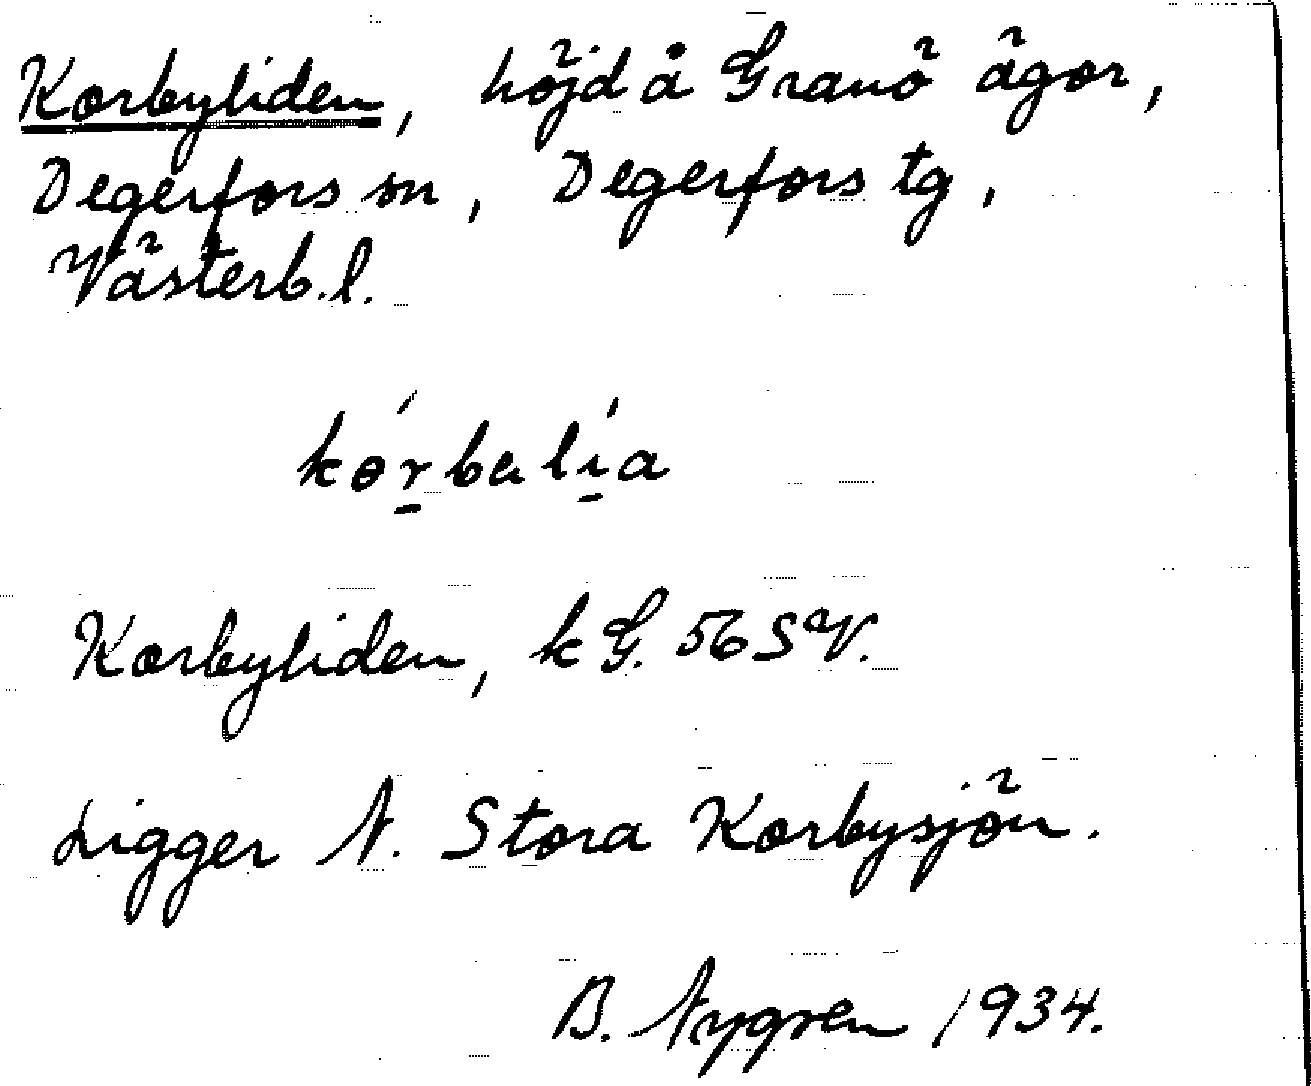 Korbyliden, höjd å Granö ägor,
Degerfors sn, Degerfors tg,
Västerb.l.
kǿr̲balí̲a
Korbyliden, kG. 56 SV.
Ligger N. Stora Korbysjön.
B. Nygren 1934.